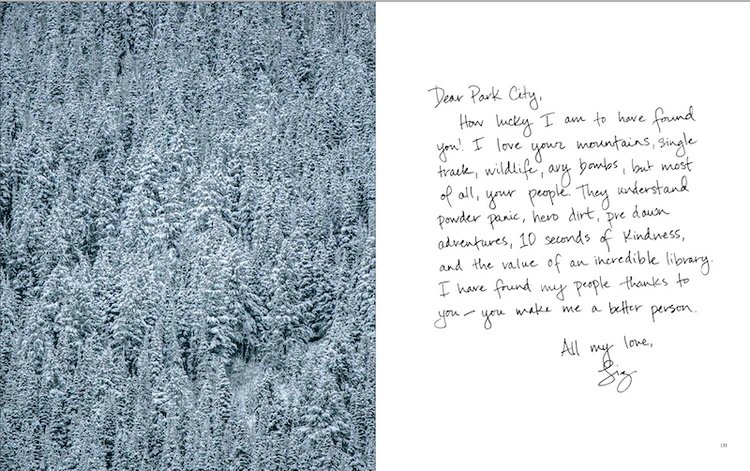 Dear Park City,
How lucky I am to have found
you! I love your mountains, single
track, wildlife, avy bombs, but most
of all, your people. They understand
powder panic, hero dirt, pre dawn
adventures, 10 seconds of kindness,
and the value of an incredible library.
I have found my people thanks to
you — you make me a better person.
All my love,
135